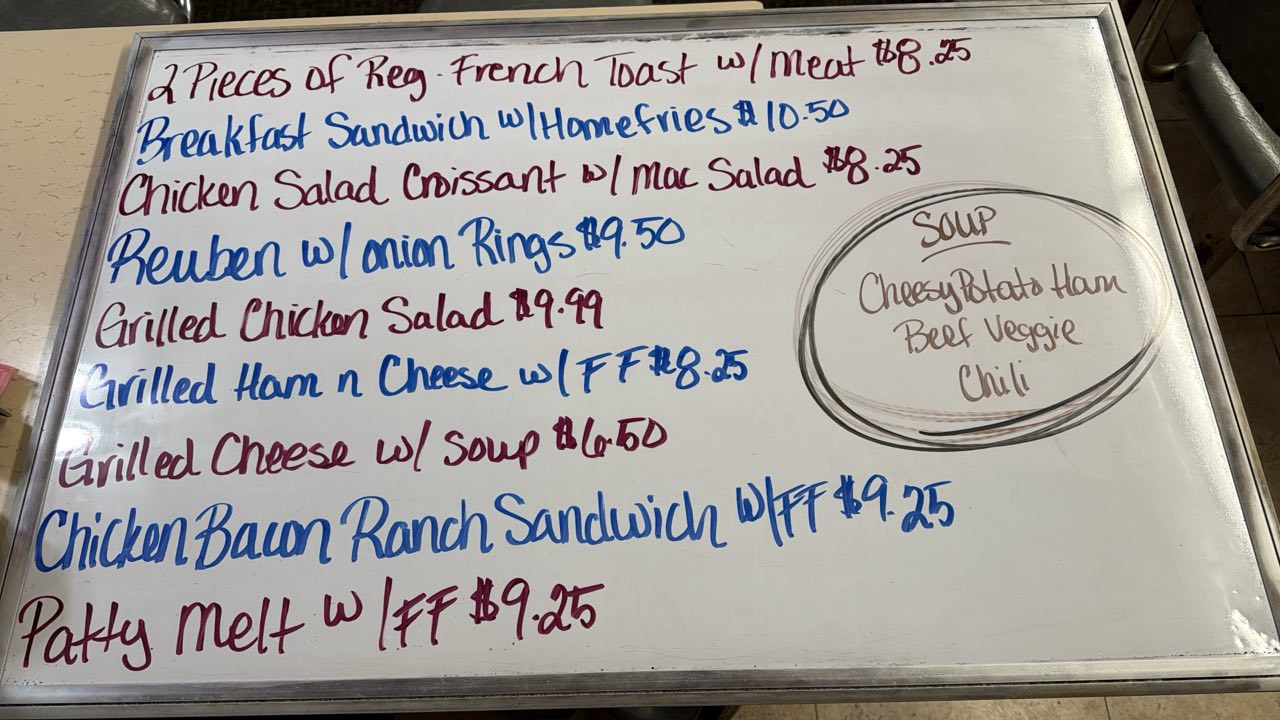 2 Pieces of Reg. French Toast w/ Meat $8.25
Breakfast Sandwich w/Homefries $10.50
Chicken Salad Croissant w/ Mac Salad $8.25
Reuben w/ onion Rings $9.50
Grilled Chicken Salad $9.99
Grilled Ham n Cheese w/ FF $8.25
Grilled Cheese w/ Soup $6.50
Chicken Bacon Ranch Sandwich w/FF $9.25
Patty Melt w/FF $9.25
Soup
Cheesy Potato Ham
Beef Veggie
Chili